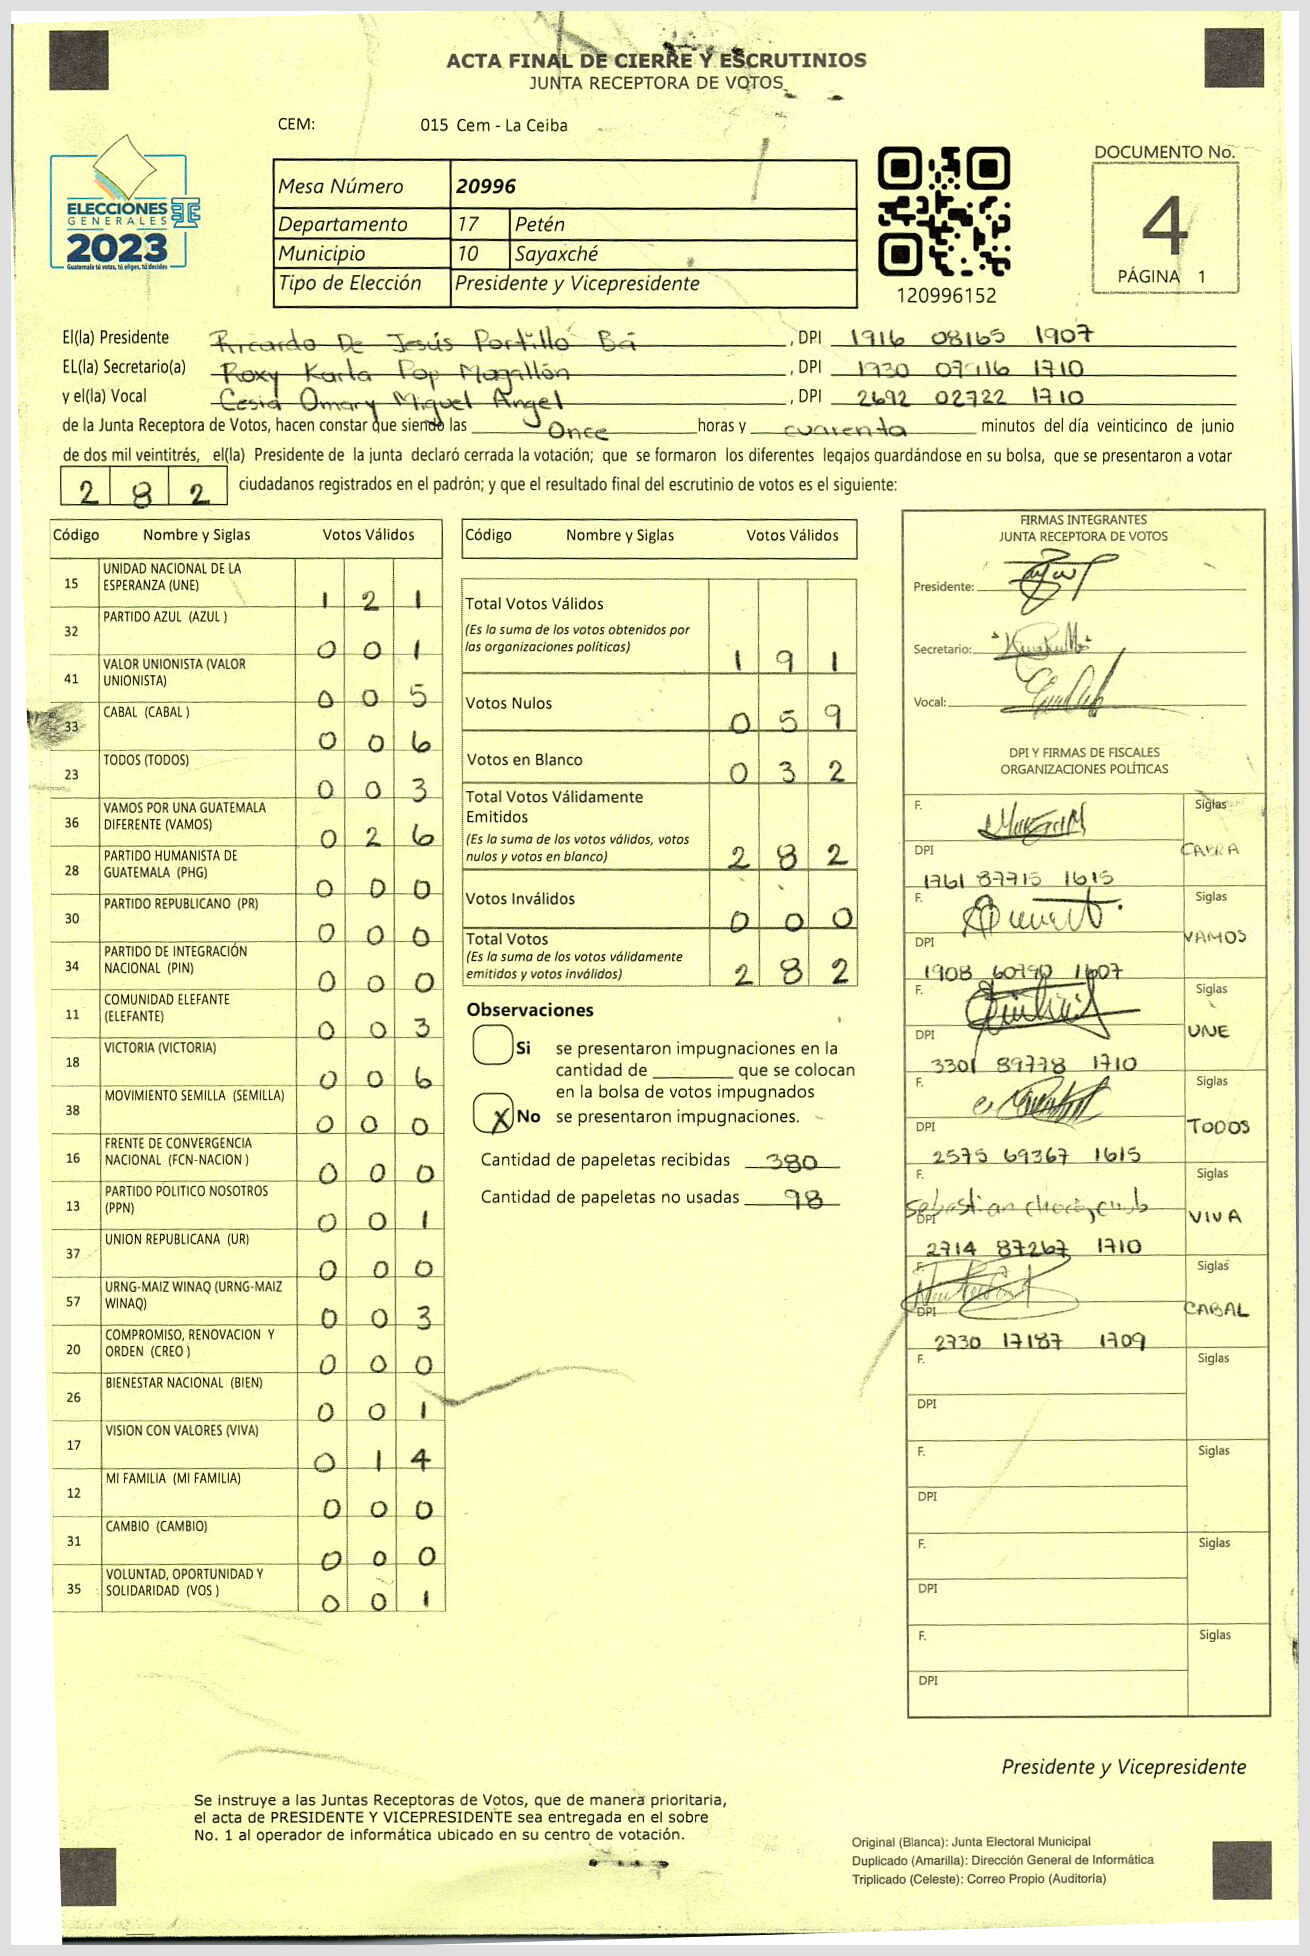 ACTA FINAL DE CIERRE Y ESCRUTINIOS
JUNTA RECEPTORA DE VOTOS
CEM: 015 Cem - La Ceiba
ELECCIONES
GENERALES
2023
Guatemala tú votas, tú eliges, tú decides
Mesa Número 20996
Departamento 17 Petén
Municipio 10 Sayaxché
Tipo de Elección Presidente y Vicepresidente
120996152
DOCUMENTO No.
4
PÁGINA 1
El(la) Presidente Ricardo De Jesús Portillo Bá, DPI 1916 08165 1907
EL(la) Secretario(a) Roxy Karla Pop Magallón, DPI 1930 07916 1710
y el(la) Vocal Cesia Omary Miguel Angel, DPI 2692 02722 1710
de la Junta Receptora de Votos, hacen constar que siendo las Once horas y cuarenta minutos del día veinticinco de junio
de dos mil veintitrés, el(la) Presidente de la junta declaró cerrada la votación; que se formaron los diferentes legajos quardándose en su bolsa, que se presentaron a votar
2 8 2 ciudadanos registrados en el padrón; y que el resultado final del escrutinio de votos es el siguiente:
Código Nombre y Siglas Votos Válidos
15 UNIDAD NACIONAL DE LA ESPERANZA (UNE) 1 2 1
32 PARTIDO AZUL (AZUL ) 0 0 1
41 VALOR UNIONISTA (VALOR UNIONISTA) 0 0 5
33 CABAL (CABAL ) 0 0 6
23 TODOS (TODOS) 0 0 3
36 VAMOS POR UNA GUATEMALA DIFERENTE (VAMOS) 0 2 6
28 PARTIDO HUMANISTA DE GUATEMALA (PHG) 0 0 0
30 PARTIDO REPUBLICANO (PR) 0 0 0
34 PARTIDO DE INTEGRACIÓN NACIONAL (PIN) 0 0 0
11 COMUNIDAD ELEFANTE (ELEFANTE) 0 0 3
18 VICTORIA (VICTORIA) 0 0 6
38 MOVIMIENTO SEMILLA (SEMILLA) 0 0 0
16 FRENTE DE CONVERGENCIA NACIONAL (FCN-NACION ) 0 0 0
13 PARTIDO POLITICO NOSOTROS (PPN) 0 0 1
37 UNION REPUBLICANA (UR) 0 0 0
57 URNG-MAIZ WINAQ (URNG-MAIZ WINAQ) 0 0 3
20 COMPROMISO, RENOVACION Y ORDEN (CREO ) 0 0 0
26 BIENESTAR NACIONAL (BIEN) 0 0 1
17 VISION CON VALORES (VIVA) 0 1 4
12 MI FAMILIA (MI FAMILIA) 0 0 0
31 CAMBIO (CAMBIO) 0 0 0
35 VOLUNTAD, OPORTUNIDAD Y SOLIDARIDAD (VOS ) 0 0 1
Código Nombre y Siglas Votos Válidos
Total Votos Válidos
(Es la suma de los votos obtenidos por
las organizaciones políticas) 1 9 1
Votos Nulos 0 5 9
Votos en Blanco 0 3 2
Total Votos Válidamente
Emitidos
(Es la suma de los votos válidos, votos
nulos y votos en blanco) 2 8 2
Votos Inválidos 0 0 0
Total Votos
(Es la suma de los votos válidamente
emitidos y votos inválidos) 2 8 2
Observaciones
Si se presentaron impugnaciones en la
cantidad de ________ que se colocan
en la bolsa de votos impugnados
X No se presentaron impugnaciones.
Cantidad de papeletas recibidas 380
Cantidad de papeletas no usadas 98
FIRMAS INTEGRANTES
JUNTA RECEPTORA DE VOTOS
Presidente:
Secretario:
Vocal:
DPI Y FIRMAS DE FISCALES
ORGANIZACIONES POLÍTICAS
F. Siglas
DPI
1761 87715 1615
F. Siglas
DPI VAMOS
1908 60790 1607
F. Siglas
DPI UNE
3301 89778 1710
F. Siglas
DPI TODOS
2575 69367 1615
F. Siglas
DPI VIVA
2714 87267 1710
F. Siglas
DPI CABAL
2730 17187 1709
F. Siglas
DPI
F. Siglas
DPI
F. Siglas
DPI
F. Siglas
DPI
Presidente y Vicepresidente
Se instruye a las Juntas Receptoras de Votos, que de manera prioritaria,
el acta de PRESIDENTE Y VICEPRESIDENTE sea entregada en el sobre
No. 1 al operador de informática ubicado en su centro de votación.
Original (Blanca): Junta Electoral Municipal
Duplicado (Amarilla): Dirección General de Informática
Triplicado (Celeste): Correo Propio (Auditoría)